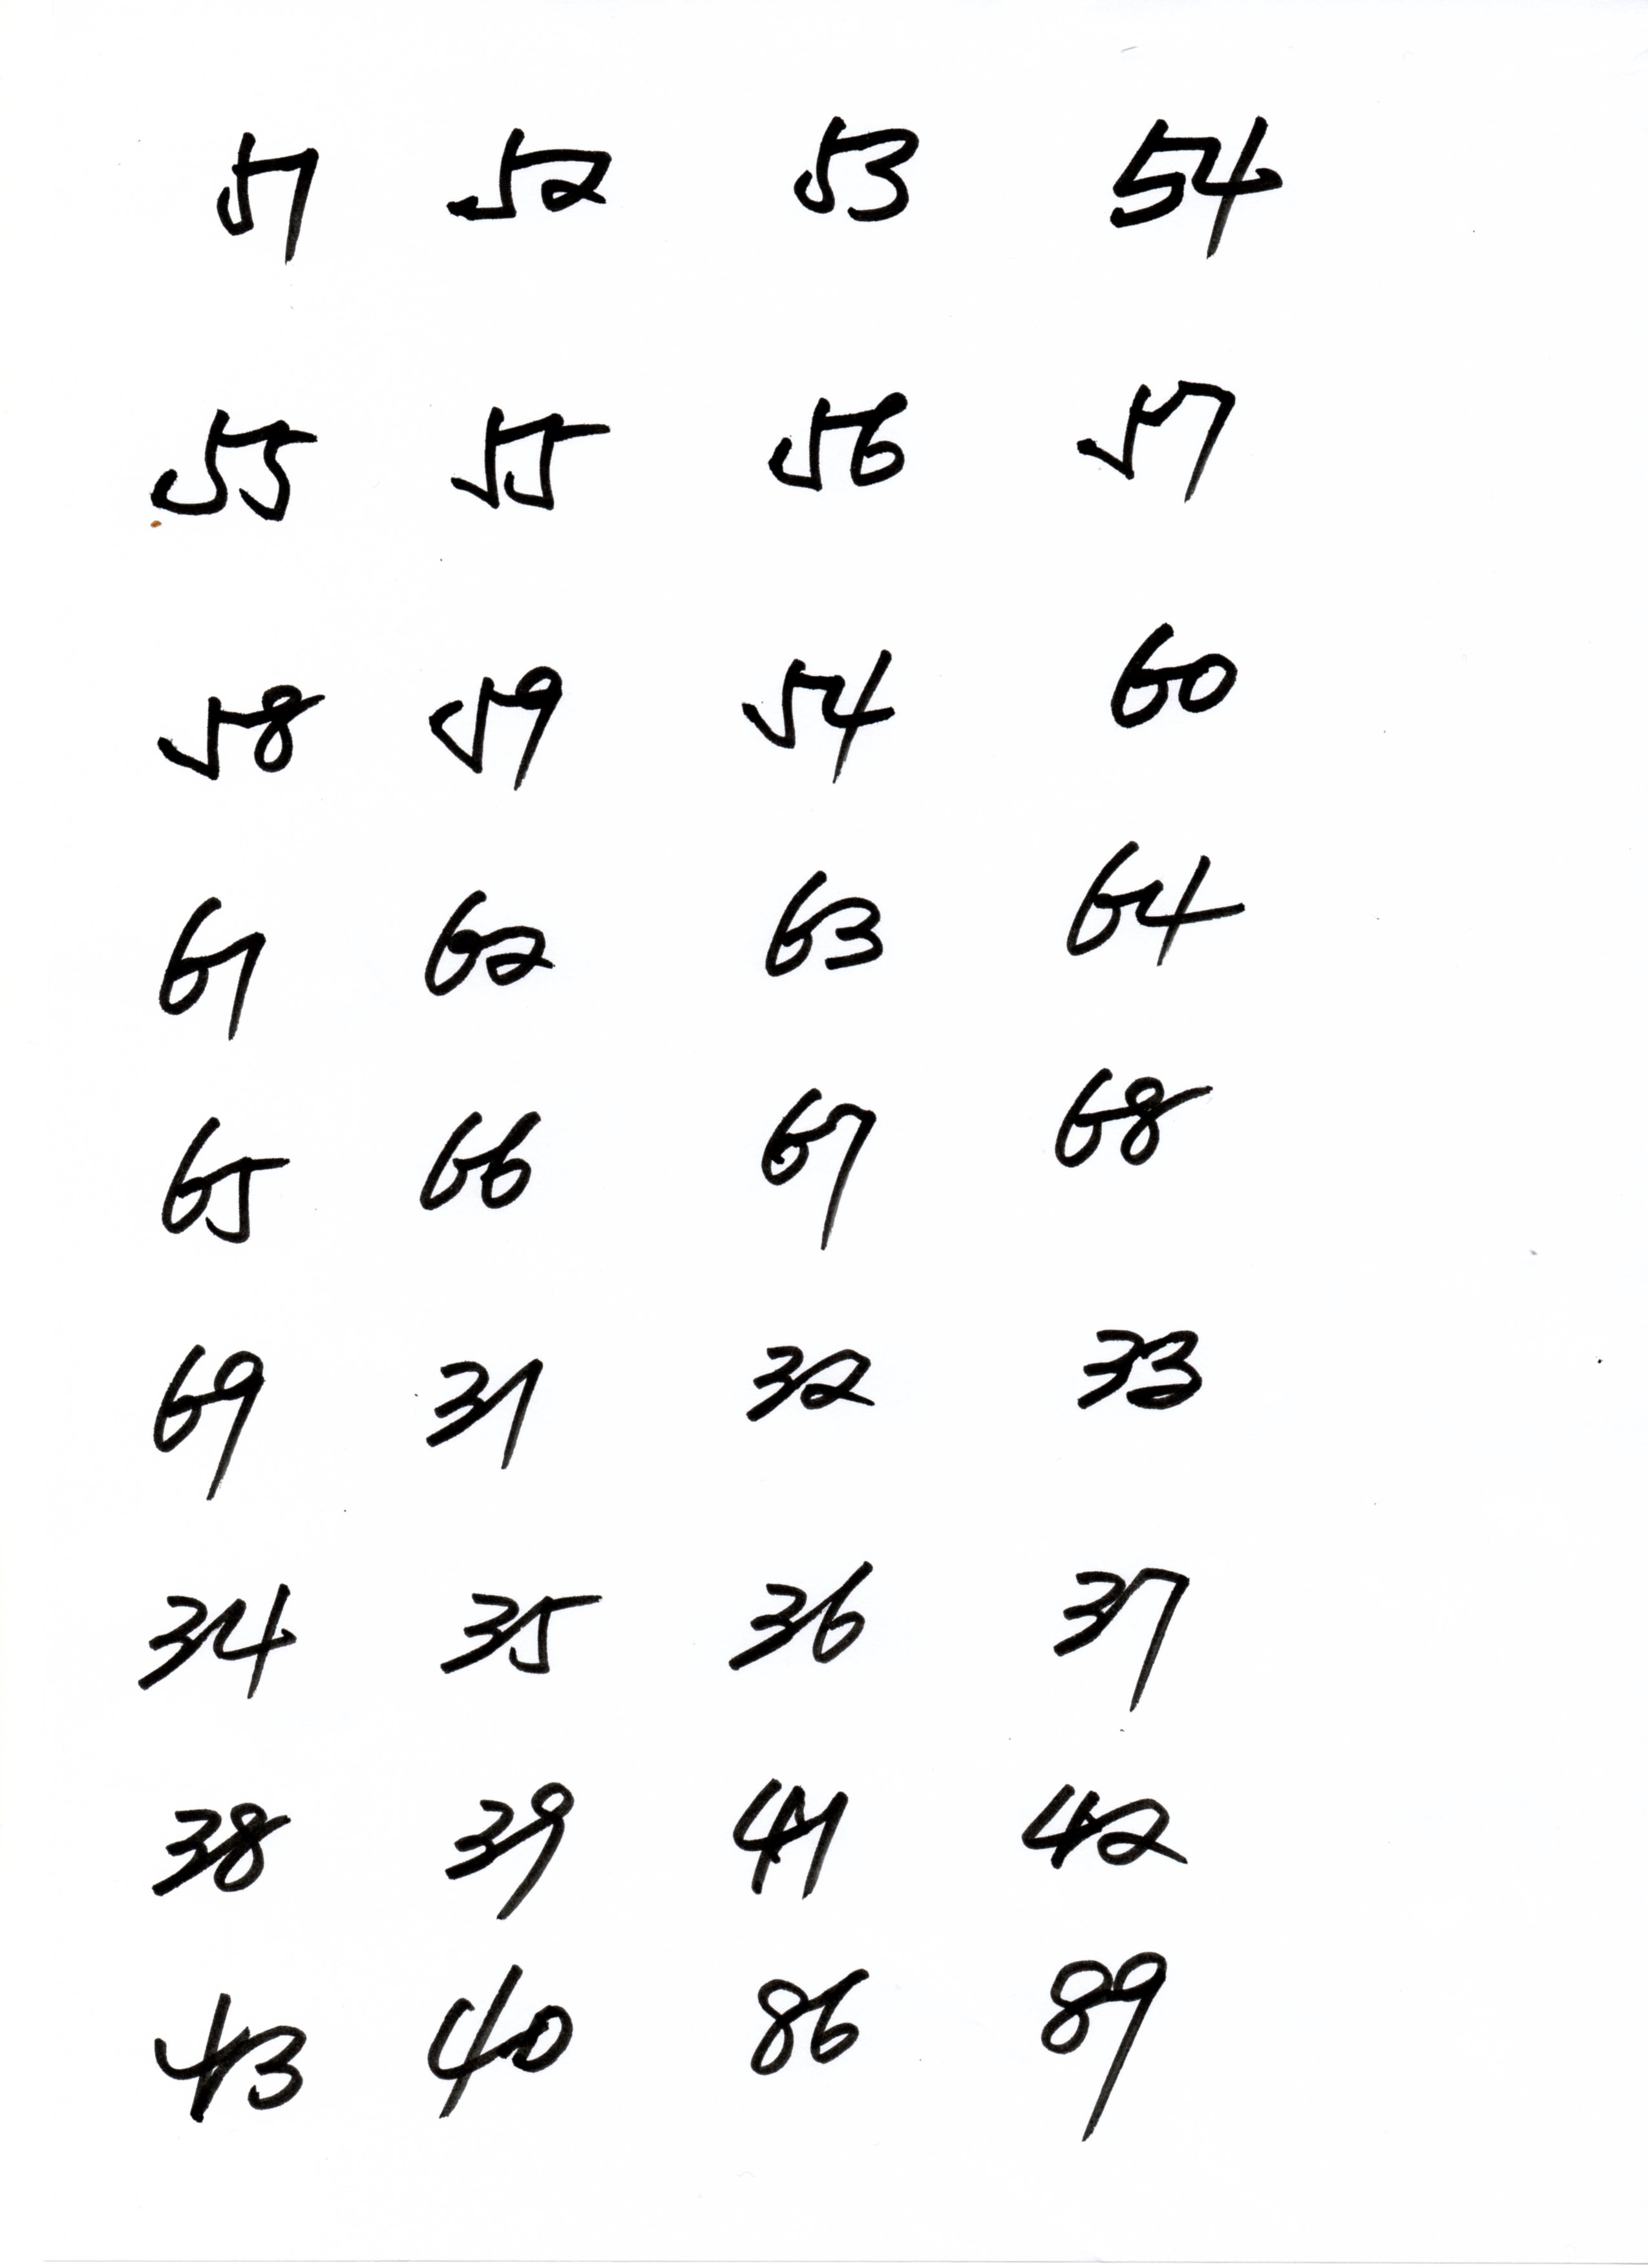 51 52 53 54
55 55 56 57
58 59 54 60
61 62 63 64
65 66 67 68
69 31 32 33
34 35 36 37
38 39 41 42
43 40 86 89